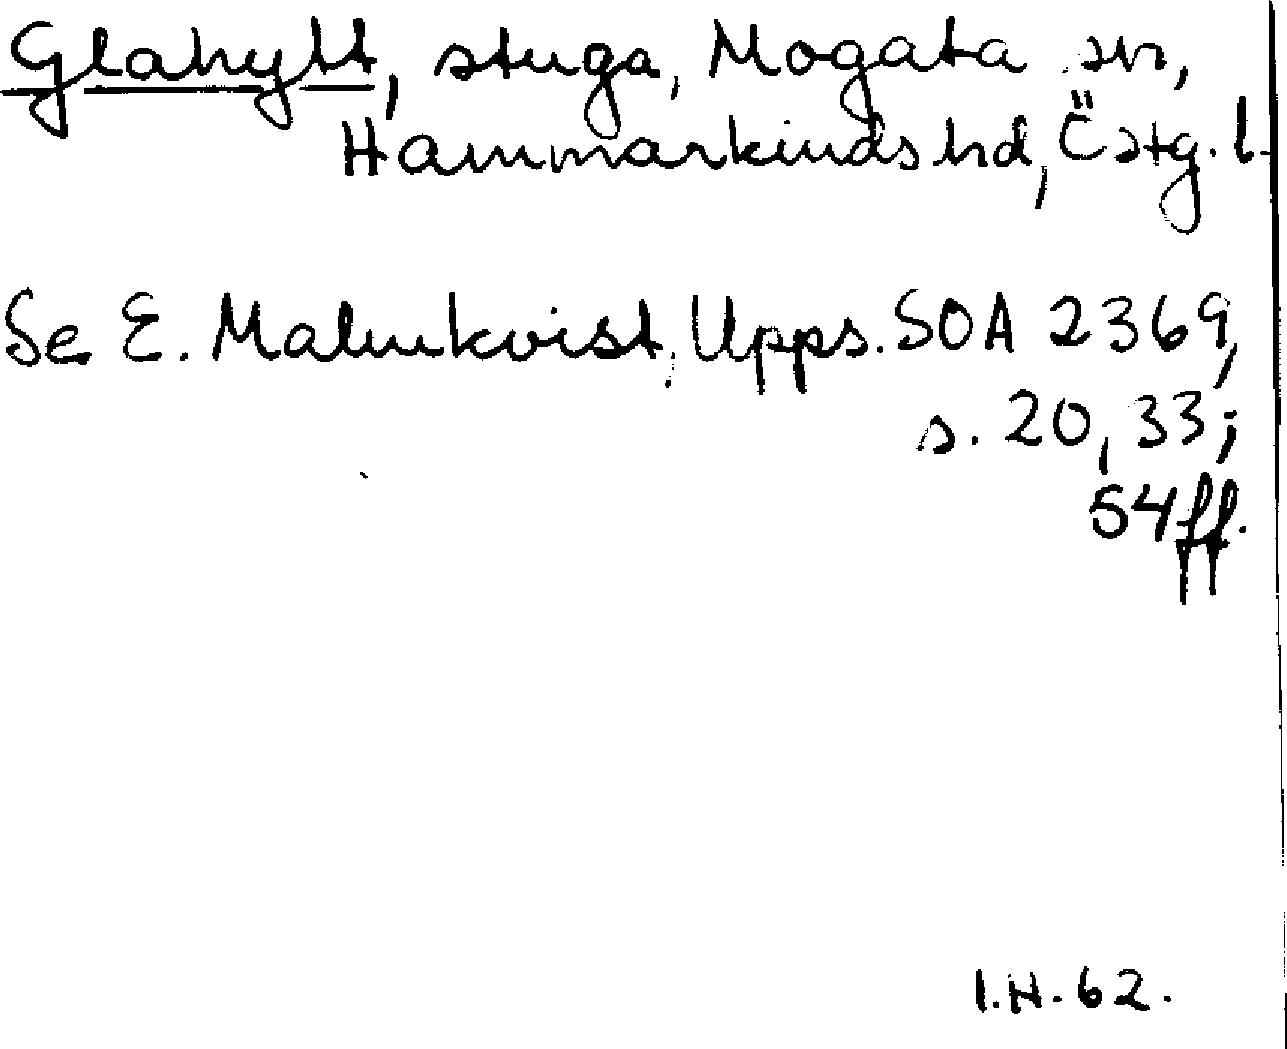 Glahytt, stuga, Mogata sn,
Hammarkinds hd, Östg. l.
Se E. Malmkvist, Upps. SOA 2369,
s. 20, 33;
54 ff.
I.H. 62.